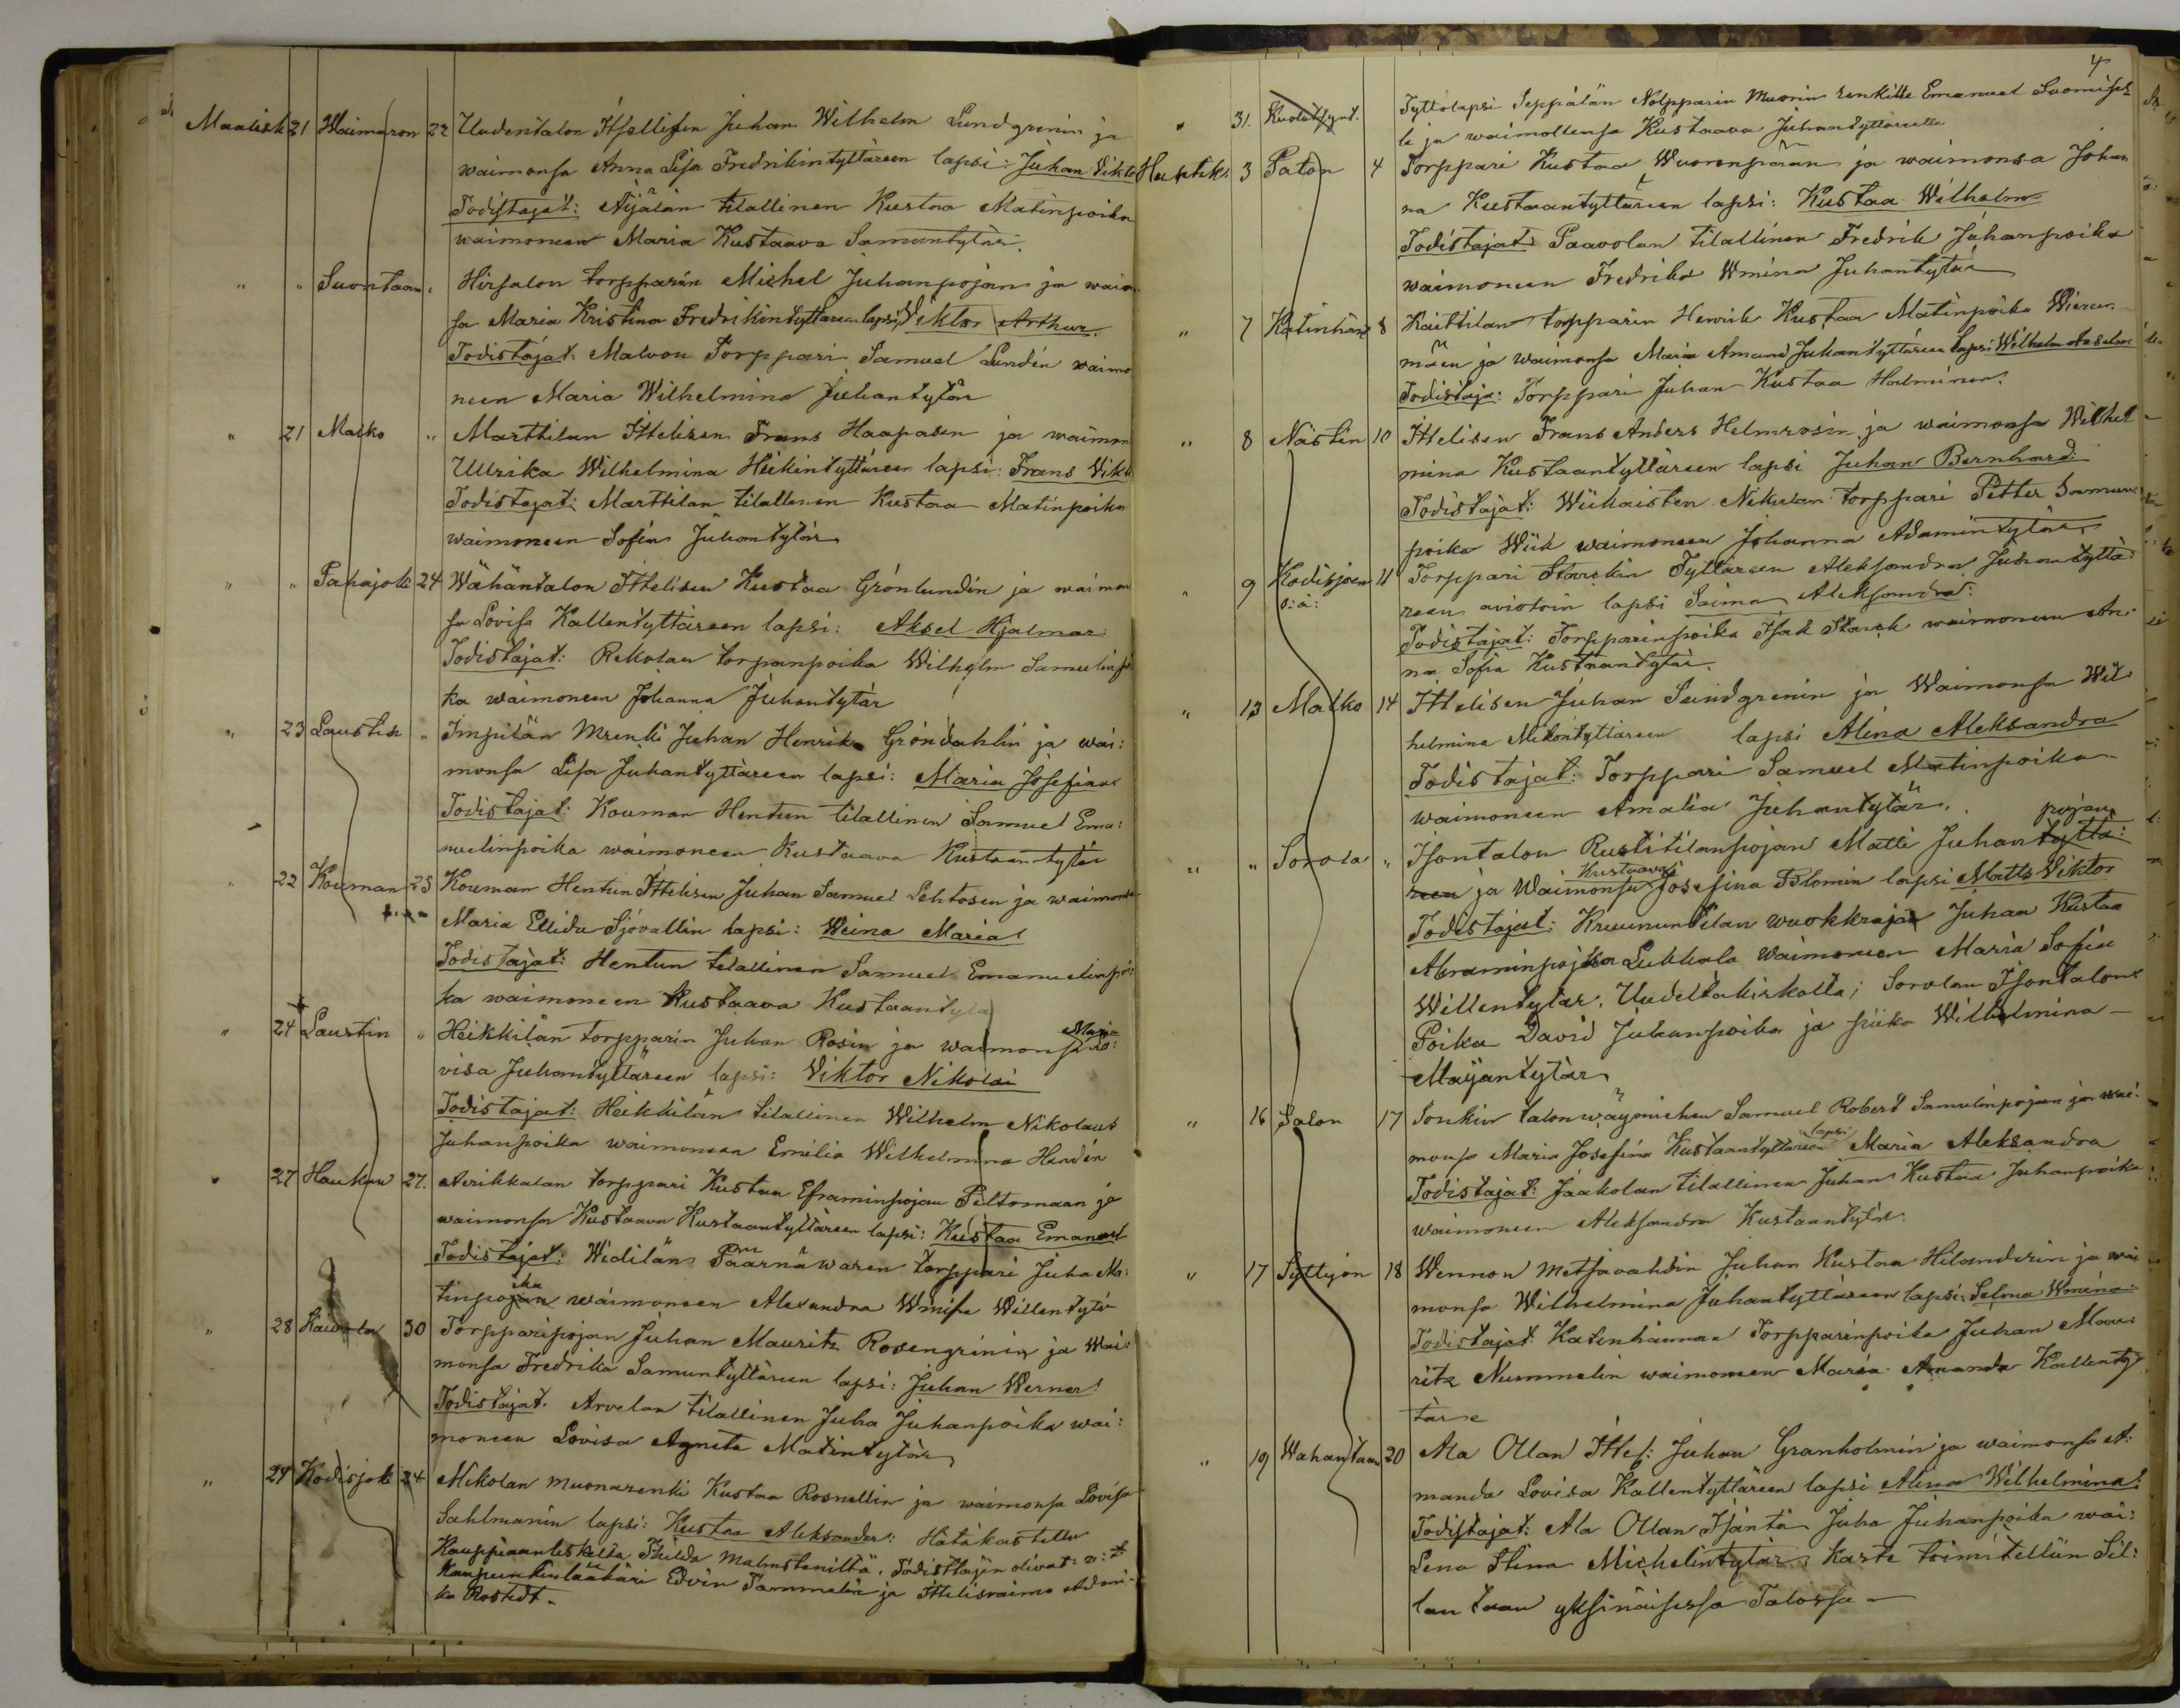 Maalisk 21 Waimaron 22 Uudentalon Itsellisen Juhan Wilhelm Lundgrenin ja
waimonsa Anna Lisa Fredrikintyttäreen lapsi: Juhan Vikto
Todistajat: Äijälän tilallinen Kustaa Matinpoika
waimoneen Maria Kustaava Samuntytär.
" " Suontaan " Hirsalon torpparin Michel Juhanpojan ja waim
sa Maria Kristina Fredrikintyttäreen lapsi, Viktor Arthur.
Todistajat. Malvon Torppari Samuel Lundén waimo
neen Maria Wilhelmina Juhantytär
" 21 Maiko " Marttilan Ittelisen Frans Haapasen ja waimon
Ullrika Wilhelmina Heikintyttäreen lapsi: Frans Vikt
Todistajat: Marttilan tilallinen Kustaa Matinpoika
waimoneen Sofia Juhantytär
" " Pahajoki 24 Wähäntalon Ittelisen Kustaa Grönlundin ja waimon
sa Lovisa Kallentyttäreen lapsi: Aksel Hjalmar
Todistajat: Rekolan torpanpoika Wilhelm Samulinpoi
ka waimoneen Johanna Juhantytär
" 23 Laustin " Impilän Mrenki Juhan Henrik Gröndahlin ja wai:
monsa Lisa Juhantyttäreen lapsi: Maria Josefina
Todistajat: Kouman Hentun tilallinen Samuel Ema:
nuelinpoika waimoneen Kustaava Kustaantytär
" 22 Kouman 25 Kouman Hentun Ittelisen Juhan Samuel Lehtosen ja waimonsa
Maria Ellida Sjövallin lapsi: Weina Maria
Todistajat: Hentun tilallinen Samuel Emanuelinpoi:
ka waimoneen Kustaava Kustaantytä
" 24 Laustin " Heikkilän torpparin Juhan Rosin ja waimonsa Maria Lo:
visa Juhantyttäreen lapsi: Viktor Nikolai
Todistajat: Heikkilän tilallinen Wilhelm Nikolaus
Juhanpoika waimoneen Emilia Wilhelmina Hendén
" 27 Haukan 27. Aerikkalan torppari Kustaa Eframinpojan Peltomaan ja
waimonsa Kustaava Kustaantyttäreen lapsi: Kustaa Emanuel
Todistajat: Widilän Paarnäwaren torppari Juha Ma:
tinpojan ika waimoneen Alexandra Wmisa Willentytär
" 28 Kaivola 30 Torpparipojan Juhan Mauritz Rosengrinin ja Wai:
monsa Fredrika Samuntyttäreen lapsi: Juhan Werner
Todistajat. Arvelan tilallinen Juha Juhanpoika wai:
moneen Lovisa Agneta Matintytär
" 24 Kodisjoki 24 Mikolan muonarenki Kustaa Rosnellin ja waimonsa Lovisa
Sahlmanin lapsi: Kustaa Aleksander: Hätäkastettu
Kauppiaanleskelta Thilda Malmsteniltä. Todistajin olivat: v: t:
Kaupunkinlääkäri Edvin Tammelin ja Ittelisvaimo Admi-
ka Rostedt.
4
" 31. Kuolut synt. Tyttolapsi Seppälän Nolpparin Muonin renkille Emanuel Suomisel
le ja waimollensa Kustaava Juhantyttärelle
Huhtik. 3 Paton 4 Torppari Kustaa Wuorenpään ja waimonsa Johan
na Kustaantyttäreen lapsi: Kustaa Wilhelm
Todistajat: Paavolan tilallinen Fredrik Juhanpoika
waimoneen Fredrika Wmina Juhantytär
" 7 Katinhänt 8 Kaittilan torpparin Henrik Kustaa Matinpoika Wieru
mäen ja waimonsa Maria Amand Juhantyttäreen lapsi Wilhelm Anselm
Todistaja: Torppari Juhan Kustaa Halminen.
" 8 Nästin 10 Ittelisen Frans Anders Helmrosin ja waimonsa Wilhel
mina Kustaantyttäreen lapsi Juhan Bernhard
Todistajat: Wiikaisten Nikulan torppari Petter Samun
poika Wiik waimoneen Johanna Adamintytär
" 9 Kodisjoen o: a: 11 Torppari Starckin Tyttäreen Aleksandra Juhantyttä
reen aviotoin lapsi Saima Aleksandra
Todistajat: Torpparinpoika Isak Starck waimoneen An
na Sofia Kustaantytär.
" 13 Maiko 14 Ittelisen Juhan Lundgrenin ja Waimonsa Wil
helmina Mikontyttäreen lapsi Alina Aleksandra
Todistajat: Torppari Samuel Matinpoika
waimoneen Amalia Juhantytär.
" " Sorola " Isontalon Rustitilanpojan Matti Juhantyttä: pojan
reen ja Waimonsa Kustaava Josefina Blomin lapsi Matts Viktor
Todistajat: Kruununtilan wuokkrajan Juhan Kustaa
Abraminpojka Lukkala waimoneen Maria Sofia
Willentytär. Uudeltakirkolta; Sorolan Isontalon
Poika David Juhanpoika ja piika Wilhelmina
Maijantytär
" 16 Salon 17 Sonkin talonwäymiehen Samuel Robert Samulinpojan ja wai
monsa Maria Josefina Kustaantyttäreen lapsi Maria Aleksandra
Todistajat: Jaakolan tilallinen Juhan Kustaa Juhanpoika
waimoneen Aleksandra Kustaantytär.
" 17 Syttyjon 18 Wennon Metsävahdin Juhan Kustaa Hilanderin ja wai
monsa Wilhelmina Juhantyttäreen lapsi: Selma Wmina
Todistajat. Katinhännan Torpparinpoika Juhan Mau
ritz Nummelin waimoneen Maria Amanda Kallenty
tär
" 19 Wahantaan 20 Ala Ollan Ittel: Juhan Granholmin ja waimonsa A:
manda Lovisa Kallentyttäreen lapsi Alina Wilhelmina
Todistajat: Ala Ollan Isäntä Juha Juhanpoika wai:
Lena Stina Michelintytär. Kaste toimitettiin Sil:
lantaan yksinäisessä Talossa